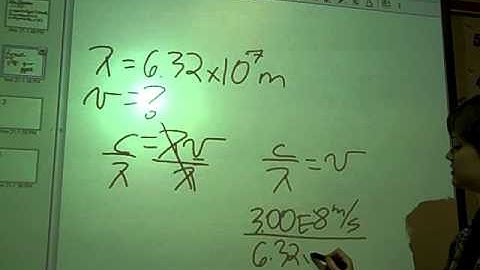 λ = 6.32 x 10⁻⁷ m
ν = ?
c/λ = λν/λ
c/λ = ν
3.00E8 m/s
6.32